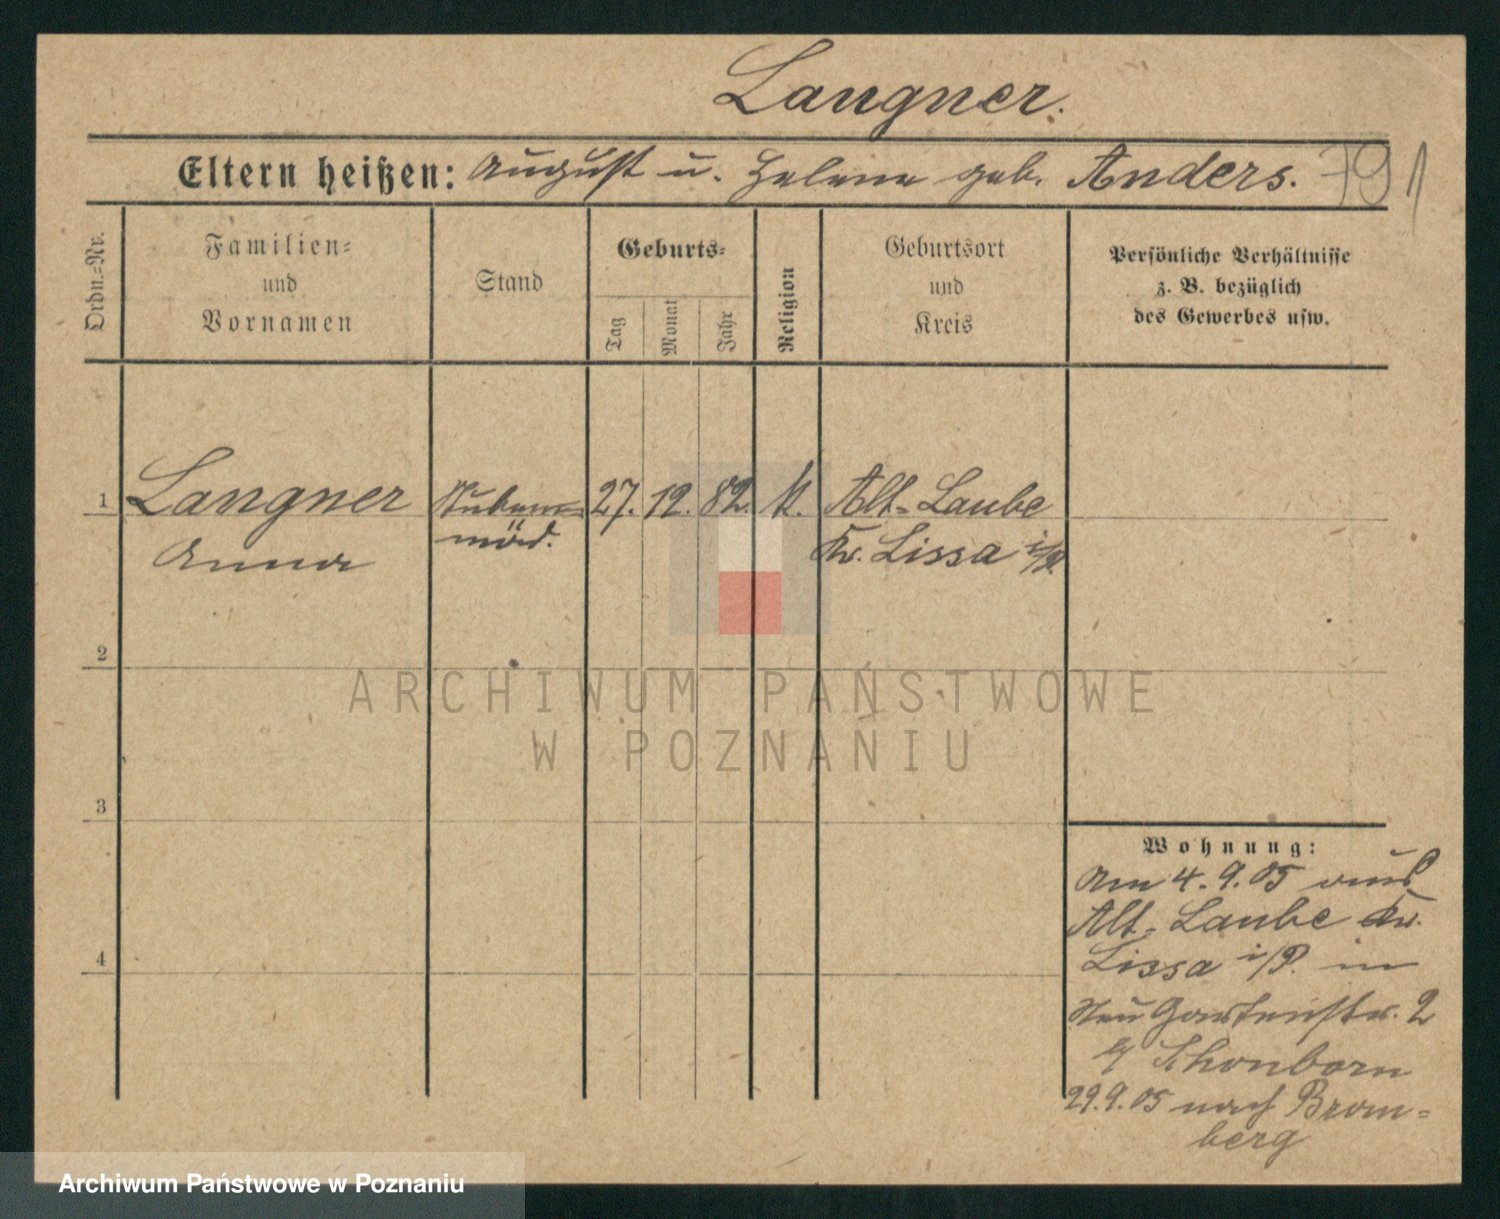 Langner.
Eltern heißen: August u. Helene geb. Anders. 791
Ordn.=Nr.
Familien=
und
Vornamen
Stand
Geburts=
Tag
Monat
Jahr
Religion
Geburtsort
und
Kreis
Persönliche Verhältnisse
z. B. bezüglich
des Gewerbes usw.
1 Langner Stuben= 27. 12. 82. k. Alt-Laube
Anna mäd. Kr. Lissa i/P.
2
3
4
ARCHIWUM PAŃSTWOWE
W POZNANIU
Wohnung:
Am 4.9.05 aus
Alt-Laube Kr.
Lissa i/P. in
Neu Gartenstr. 2
b/ Schonborn
29.9.05 nach Brom=
berg
Archiwum Państwowe w Poznaniu